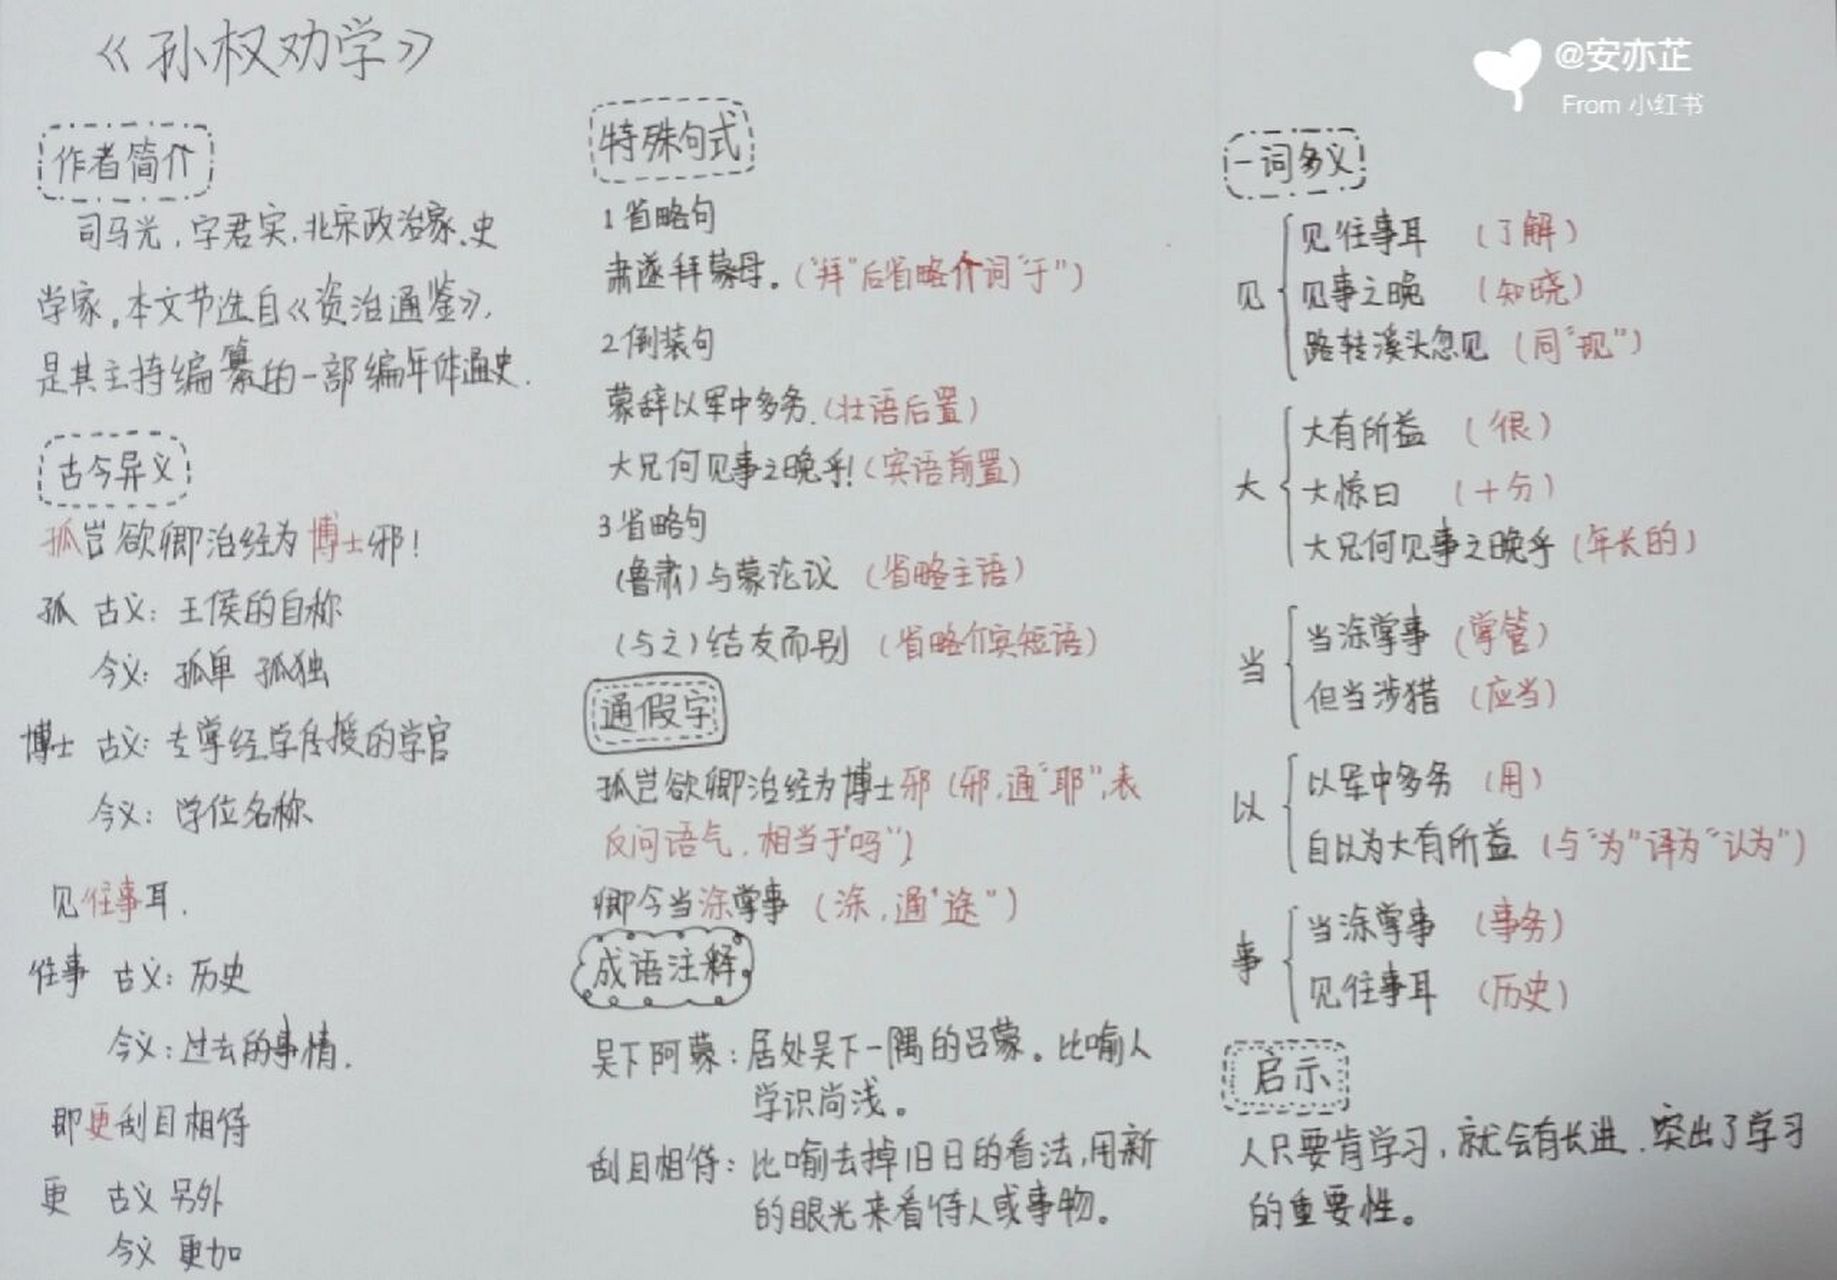 《孙权劝学》
@安亦芷
From 小红书
作者简介
司马光,字君实,北宋政治家.史
学家。本文节选自《资治通鉴》,
是其主持编纂的一部编年体通史.
古今异义
孤岂欲卿治经为博士邪!
孤 古义: 王侯的自称
今义: 孤单 孤独
博士 古义: 专掌经学传授的学官
今义: 学位名称
见往事耳.
往事 古义: 历史
今义: 过去的事情.
即更刮目相待
更 古义 另外
今义 更加
特殊句式
1 省略句
肃遂拜蒙母。("拜"后省略介词"于")
2 倒装句
蒙辞以军中多务.(壮语后置)
大兄何见事之晚乎!(宾语前置)
3 省略句
(鲁肃)与蒙论议 (省略主语)
(与之)结友而别 (省略介宾短语)
通假字
孤岂欲卿治经为博士邪(邪,通"耶",表
反问语气,相当于"吗")
卿今当涂掌事 (涂,通"途")
成语注释
吴下阿蒙: 居处吴下一隅的吕蒙。比喻人
学识尚浅。
刮目相待: 比喻去掉旧日的看法,用新
的眼光来看待人或事物。
一词多义
见往事耳 (了解)
见 见事之晚 (知晓)
路转溪头忽见 (同"现")
大有所益 (很)
大 大惊曰 (十分)
大兄何见事之晚乎 (年长的)
当涂掌事 (掌管)
当
但当涉猎 (应当)
以军中多务 (用)
以
自以为大有所益 (与"为"译为"认为")
当涂掌事 (事务)
事
见往事耳 (历史)
启示
人只要肯学习,就会有长进,突出了学习
的重要性。